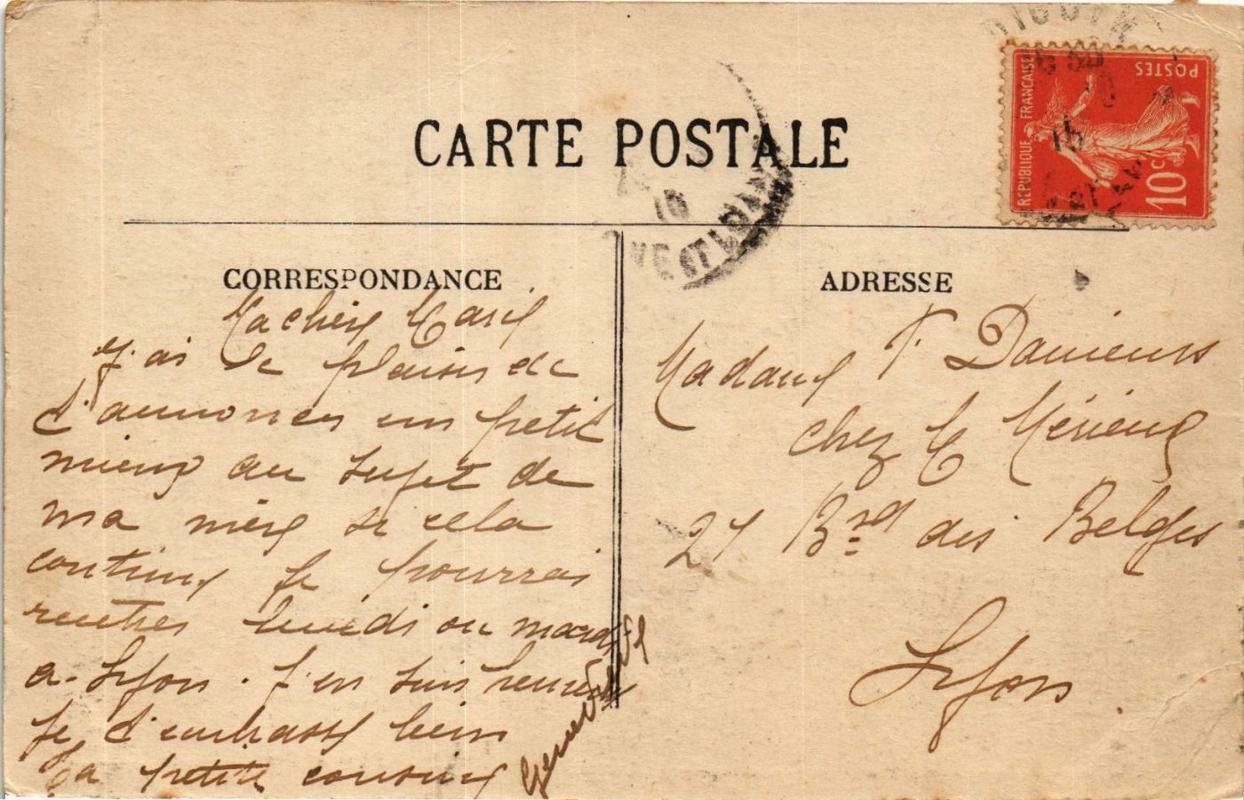 CARTE POSTALE
RÉPUBLIQUE FRANÇAISE
POSTES
10c
15
16
CORRESPONDANCE
Ma chère Marie
J'ai le plaisir de
t'annoncer un petit
mieux au sujet de
ma mère si cela
continue je pourrai
rentrer lundi ou mardi
a Lyon. J'en suis heureuse
je t'embrasse bien
Ta petite cousine
Geneviève
ADRESSE
Madame F.
chez M
27 Brd des Belges
Lyon